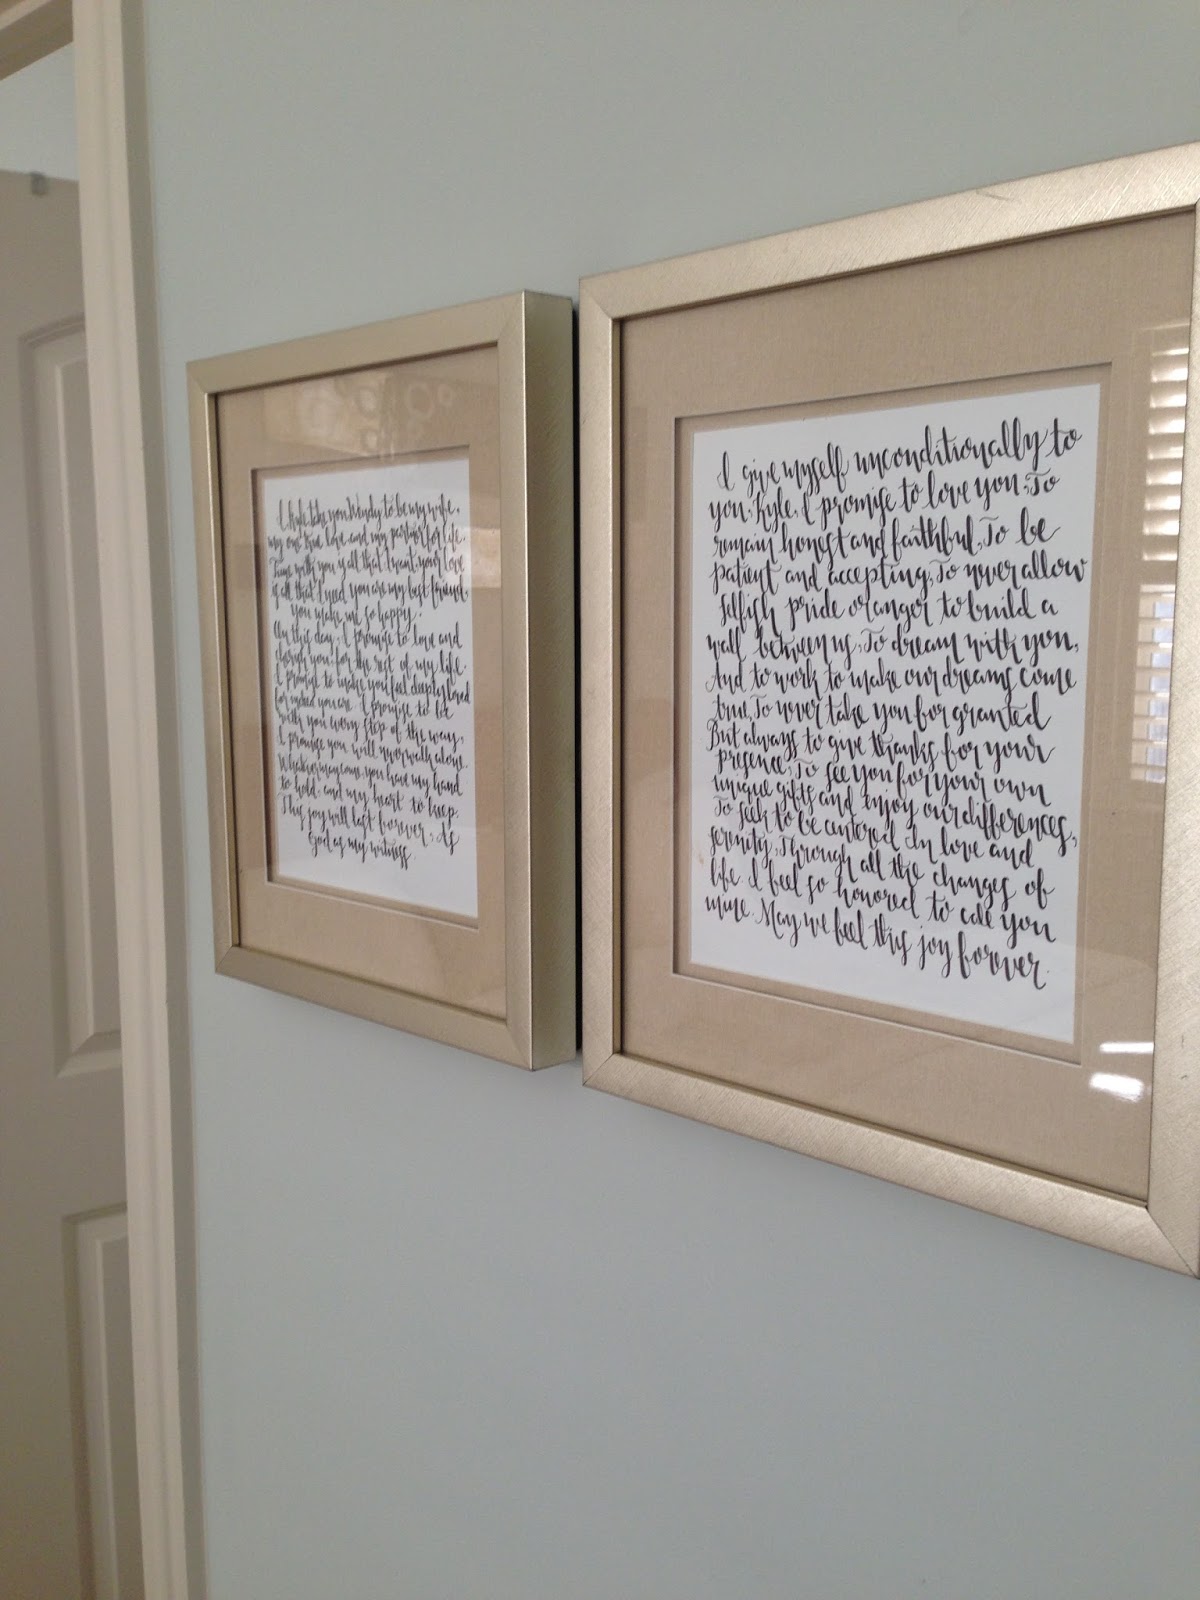 I Kyle take you Wendy to be my wife,
my one true love and my partner for life.
Time with you is all that I want, your love
is all that I need you are my best friend,
you make me so happy.
On this day, I promise to love and
cherish you for the rest of my life.
I promise to make you feel deeply loved
for indeed you are. I promise to be
with you every step of the way,
I promise you will never walk alone.
Whatever may come, you have my hand
to hold, and my heart to keep.
This joy will last forever, As
God as my witness
I give myself unconditionally to
you, Kyle, I promise to love you, To
remain honest and faithful, To be
patient and accepting, To never allow
selfish pride or anger to build a
wall between us, To dream with you,
And to work to make our dreams come
true, To never take you for granted
But always to give thanks for your
presence, To see you for your own
unique gifts and enjoy our differences,
To seek to be centered In love and
serenity, Through all the changes of
life I feel so honored to call you
mine. May we feel this joy forever.